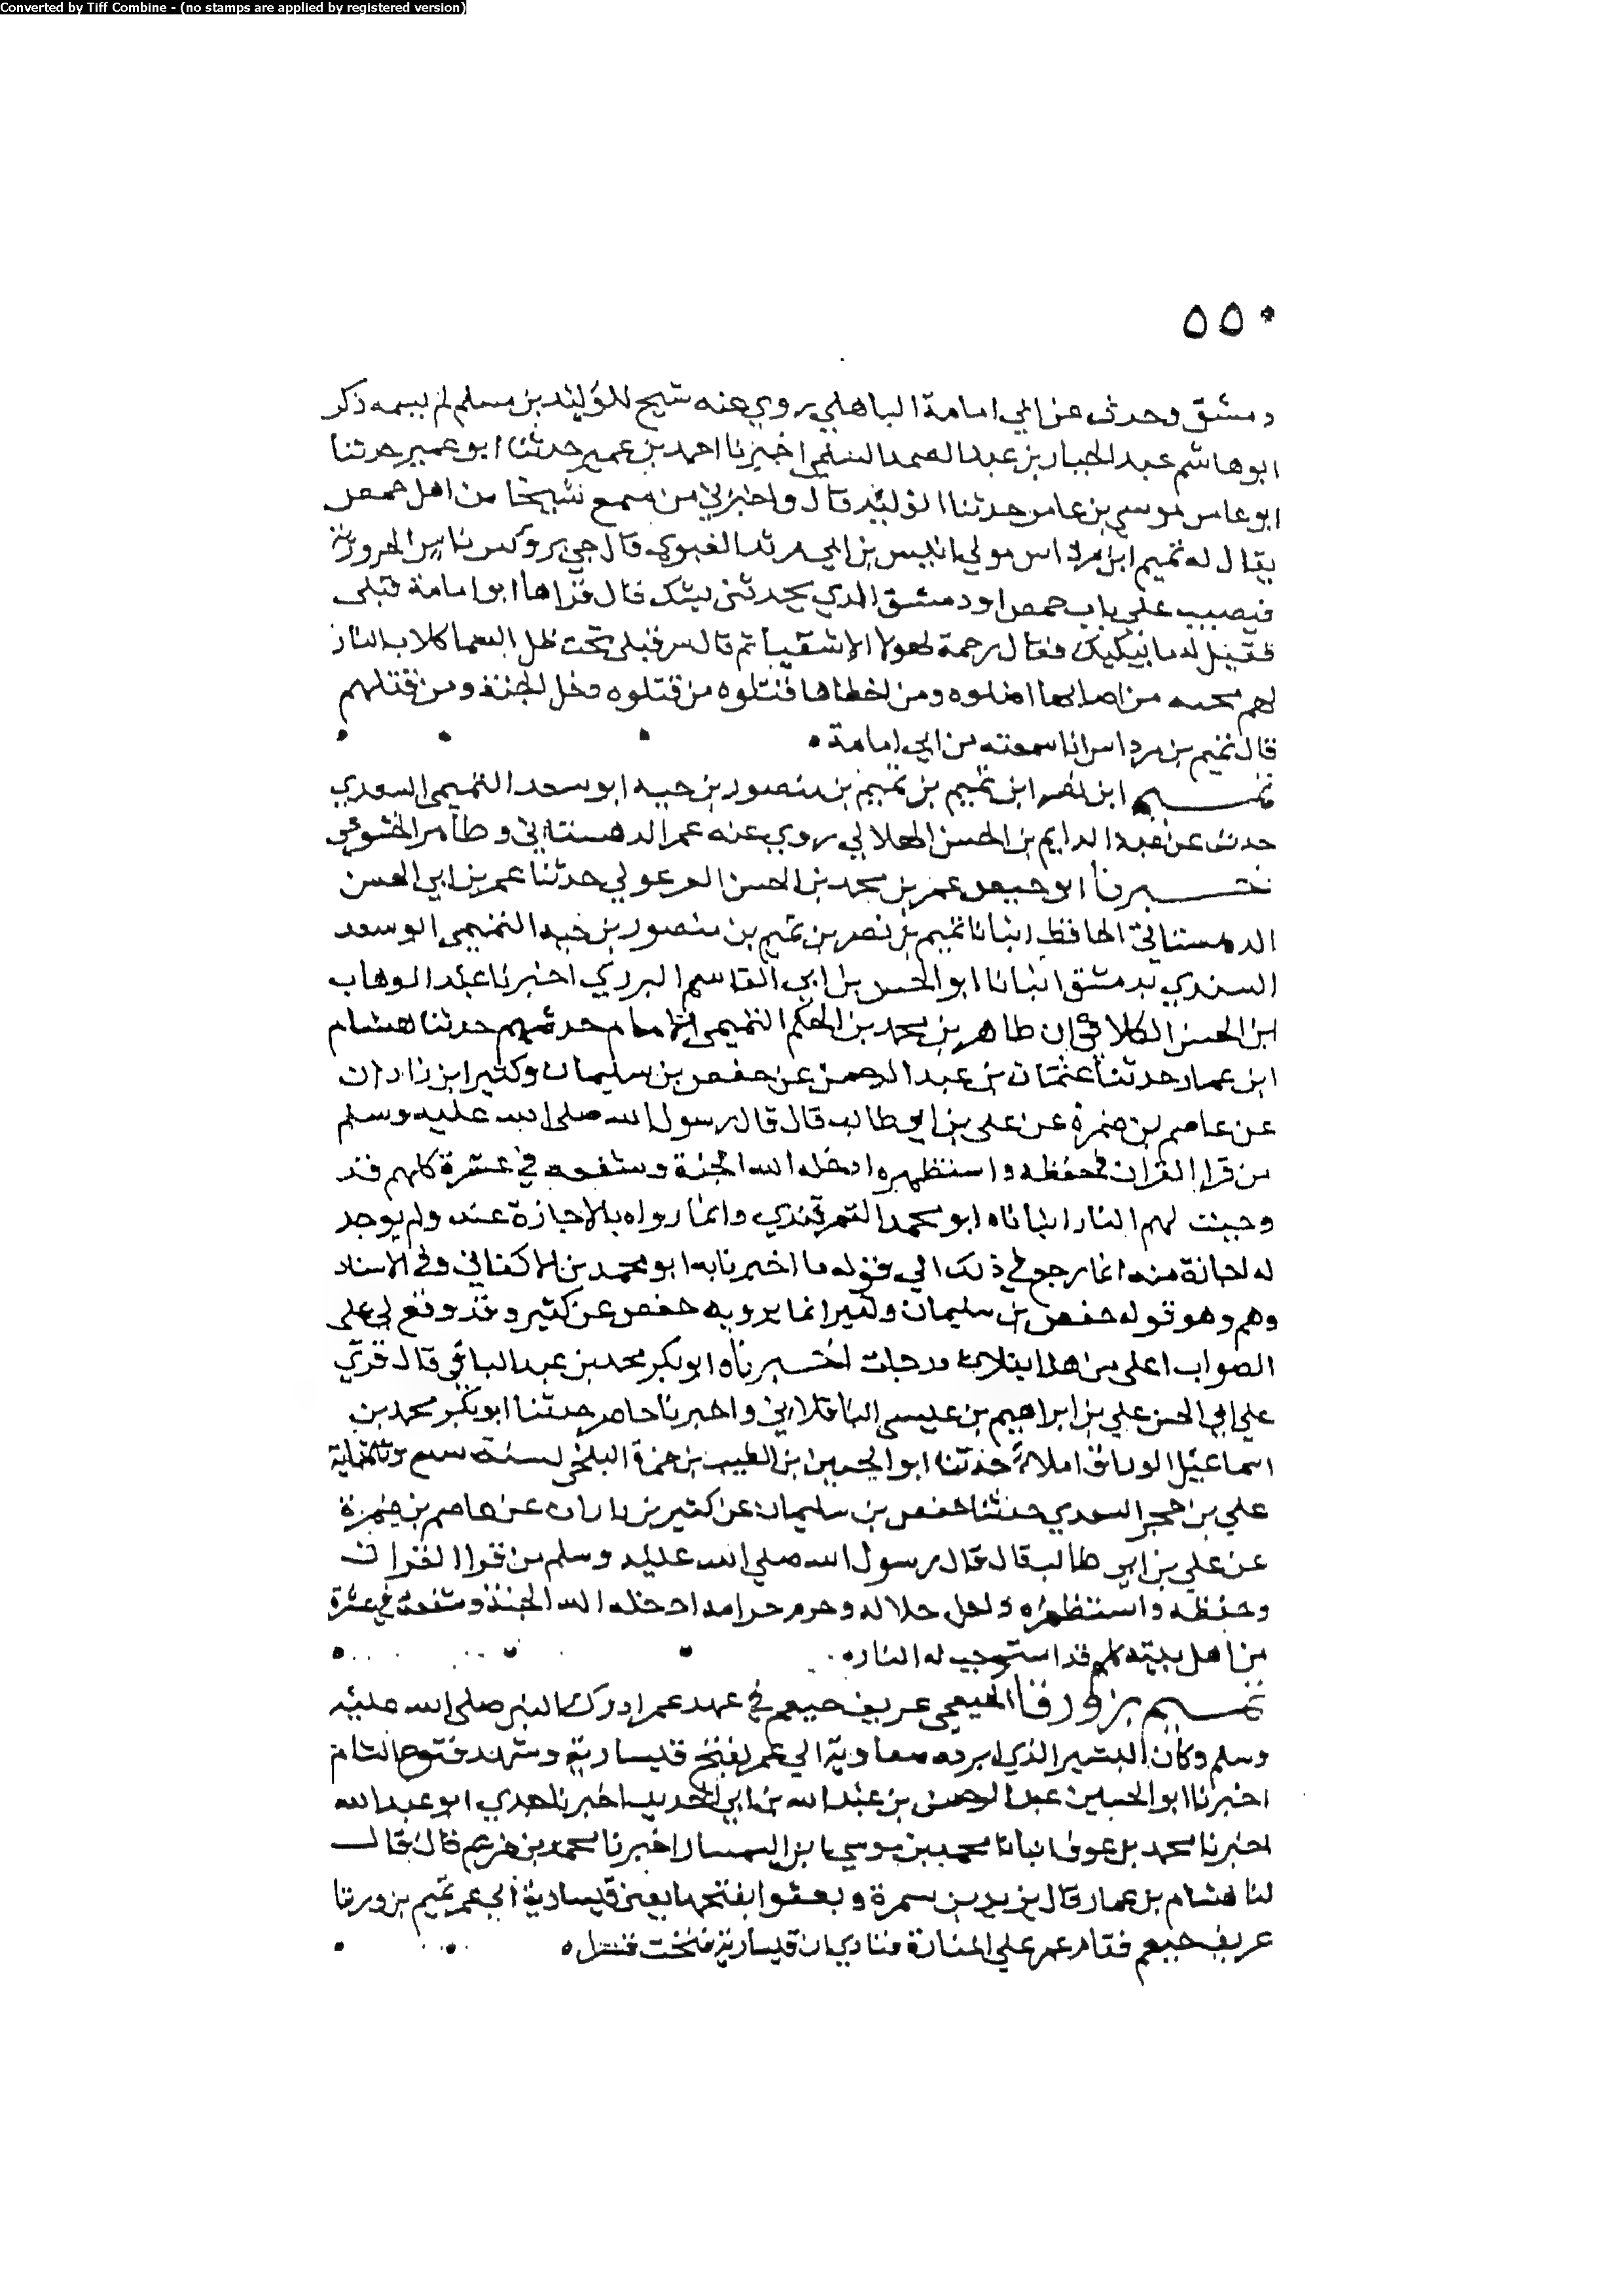 Converted by Tiff Combine - (no stamps are applied by registered version)
٥٥٠
دمشق وحدث عن ابي امامة الباهلي روي عنه شيخ للوليد بن مسلم لم يسمه ذكر
ابو هاشم عبد الجبار بن عبد الصمد السلمي اخبرنا احمد بن عمير حدثنا ابو عمير حدثنا
ابو عامر موسي بن عامر حدثنا الوليد قال واخبرني من سمع شيخا من اهل حمص
يقال له تميم ابن مرداس مولي انيس بن ابي مرثد الغنوي قال جي بروس ناس الحرورية
فنصب علي باب حمص او دمشق الذي يحدثني يشك قال فراها ابو امامة فبكى
فقيل له ما يبكيك فقال رحمة لهولا الاشقيا ثم قال شر قتلى تحت ظل السما كلاب النار
لهم من اصابها اضلوه ومن اخطاها قتلوه من قتلوه دخل الجنة ومن قتلهم
قال تميم بن مرداس انا سمعته من ابي امامة
تميم ابن نصر ابن تميم بن تميم بن منصور بن حيه ابو سعد التميمي السعدي
حدث عن عبد الدايم بن الحسن الهلالي روي عنه عمر الدهستاني وطاهر الخشوعي
اخبرنا ابو حفص عمر بن محمد بن الحسن الفرغولي حدثنا عمر بن ابي الحسن
الدهستاني الحافظ انبانا تميم بن نصر بن تميم بن منصور بن حيه التميمي ابو سعد
السندي بدمشق انبانا ابو الحسن بن ابي القاسم البرزي اخبرنا عبد الوهاب
ابن الحسن الكلابي ان طاهر بن محمد بن الحكم التميمي الامام حدثهم حدثنا هشام
ابن عمار حدثنا عثمان بن عبد الرحمن عن حفص بن سليمان وكثير ابن زادان
عن عاصم بن ضمرة عن علي بن ابي طالب قال قال رسول الله صلى الله عليه وسلم
من قرا القران فحفظه واستظهره ادخله الله الجنة وشفعه في عشرة كلهم قد
وجبت لهم النار انباناه ابو محمد السمرقندي وانما رواه بالاجازة عنه ولم يوجد
له اجازة منه انما رجع في ذلك الي قوله ما اخبرنا به ابو محمد بن الاكفاني وفي الاسناد
وهم وهو قوله حفص بن سليمان وكثير انما يرويه حفص عن كثير وقد وقع لي على
الصواب اعلى من هذا بثلاث درجات اخبرناه ابو بكر محمد بن عبد الباقي قال قري
علي ابي الحسن علي بن ابراهيم بن عيسى الباقلاني وانا حاضر حدثنا ابو بكر محمد بن
اسماعيل الوراق املا حدثنا ابو الحسين ابن الطيب بن حمزة البلخي لسنة سبع وثلثماية
علي بن حجر السعدي حدثنا حفص بن سليمان عن كثير بن زادان عن عاصم بن ضمرة
عن علي بن ابي طالب قال قال رسول الله صلي الله عليه وسلم من قرا القران
وحفظه واستظهره واحل حلاله وحرم حرامه ادخله الله الجنة وشفعه في عشرة
من اهل بيته كلهم قد استوجب له النار
تميم بن ورقا الخثعمي عريف خثعم في عهد عمر ادرك النبي صلى الله عليه
وسلم وكان البشير الذي ابرده معاوية الي عمر بفتح قيسارية وشهد فتوح الشام
اخبرنا ابو الحسين عبد الرحمن بن عبد الله بن ابي الحديد اخبرنا جدي ابو عبد الله
اخبرنا محمد بن عوف انبانا محمد بن موسي بن السمسار اخبرنا محمد بن خريم قال قال
لنا هشام بن عمار قال يزيد بن سمرة وبعثوا بفتحها يعني قيسارية الي عمر تميم بن ورقا
عريف خثعم فقام عمر علي المنارة فنادي ان قيسارية فتحت قسرا